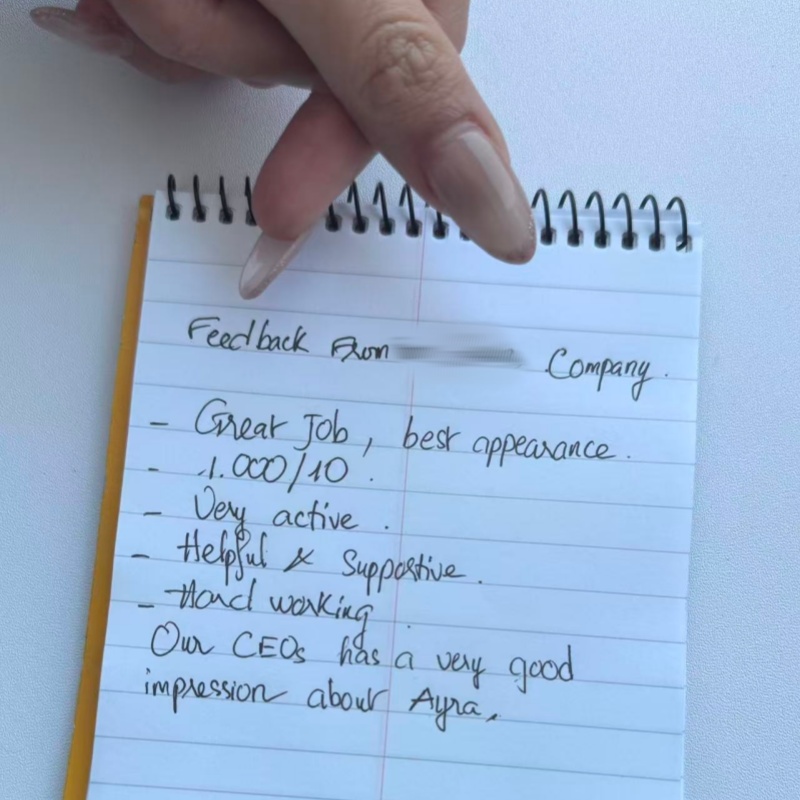 Feedback From Company.
- Great Job, best appearance.
- 1.000/10.
- Very active.
- Helpful & Supportive.
- Hard working.
Our CEOs has a very good
impression about Ayra.